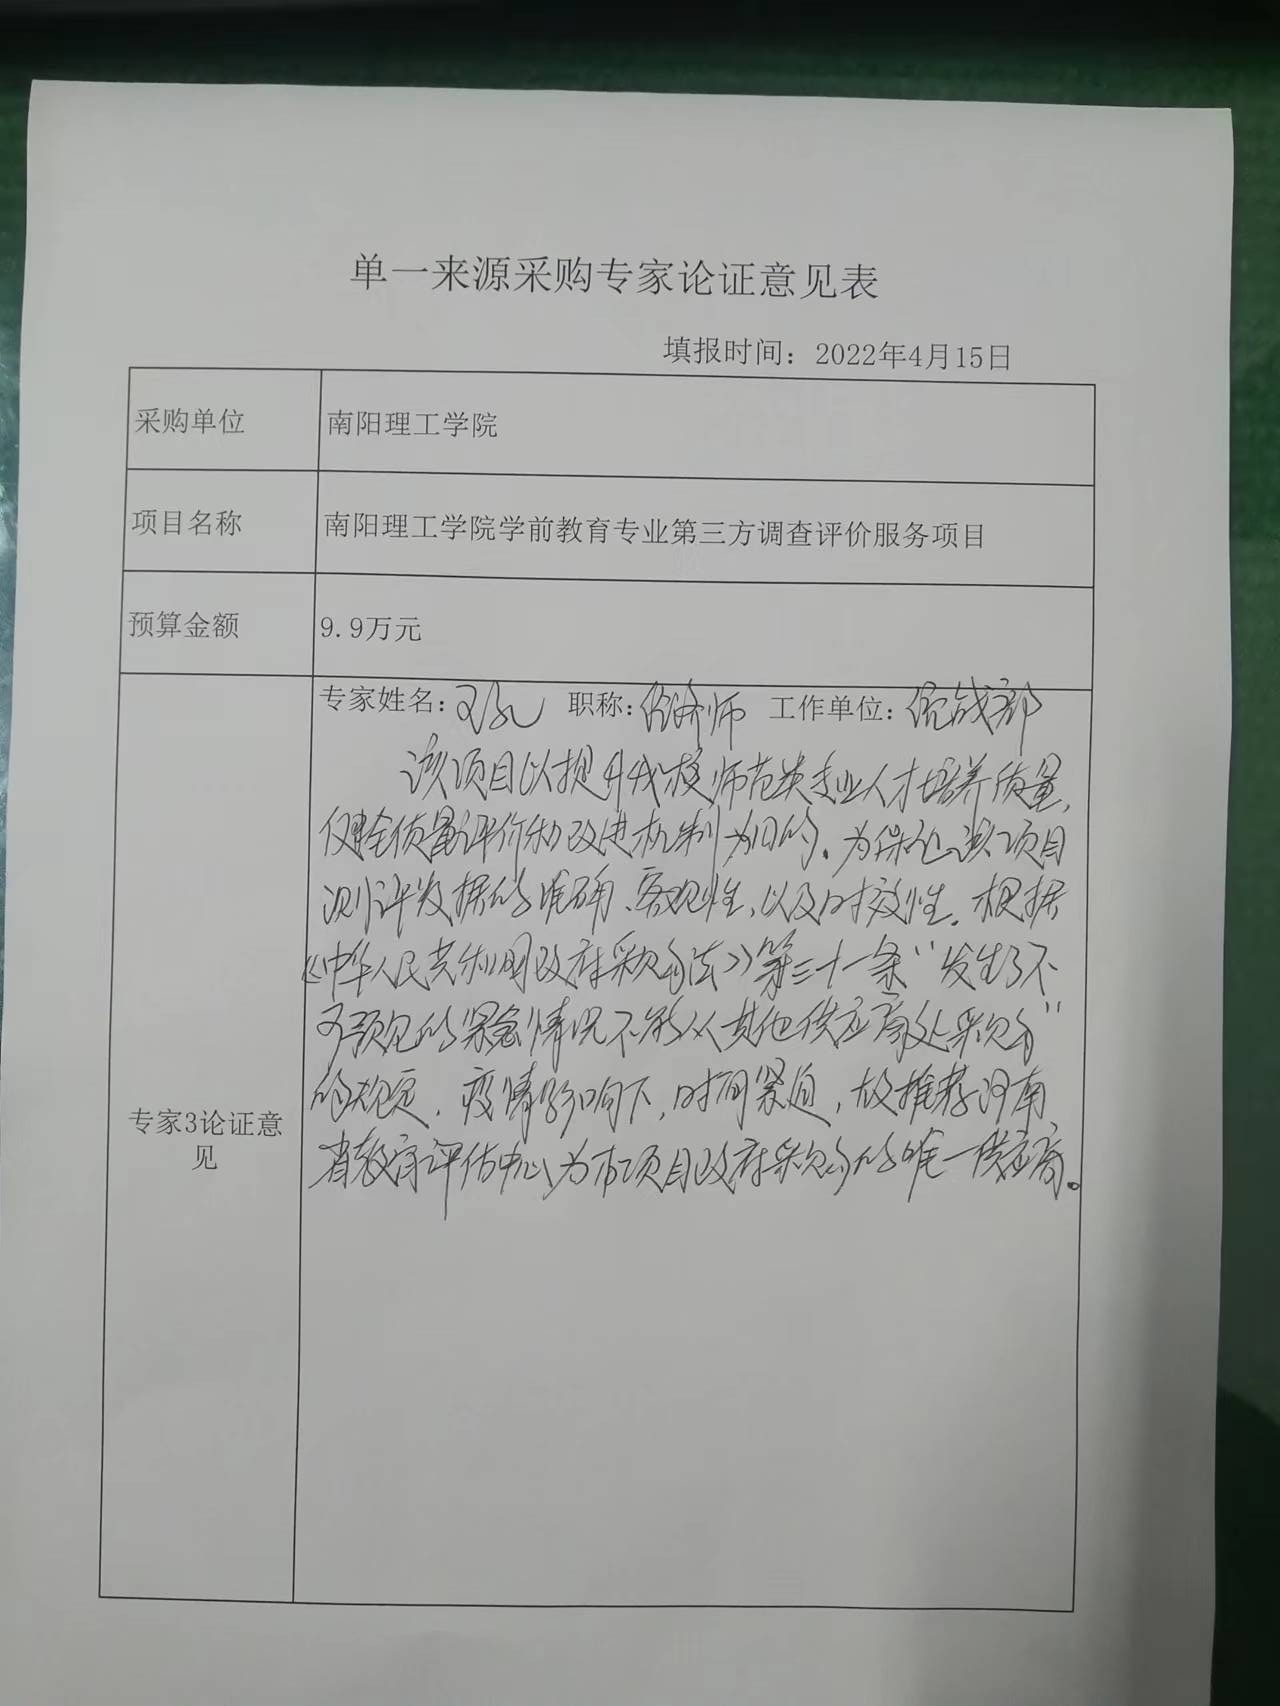 单一来源采购专家论证意见表
填报时间：2022年4月15日
采购单位
南阳理工学院
项目名称
南阳理工学院学前教育专业第三方调查评价服务项目
预算金额
9.9万元
专家3论证意
见
专家姓名： 职称：经济师 工作单位：统战部
该项目以提升我校师范类专业人才培养质量，
健全质量评价和改进机制为目的。为保证该项目
测评数据的准确、客观性，以及时效性。根据
《中华人民共和国政府采购法》第三十一条“发生了不
可预见的紧急情况不能从其他供应商处采购”
的规定。疫情影响下，时间紧迫，故推荐河南
省教育评估中心为本项目政府采购的唯一供应商。